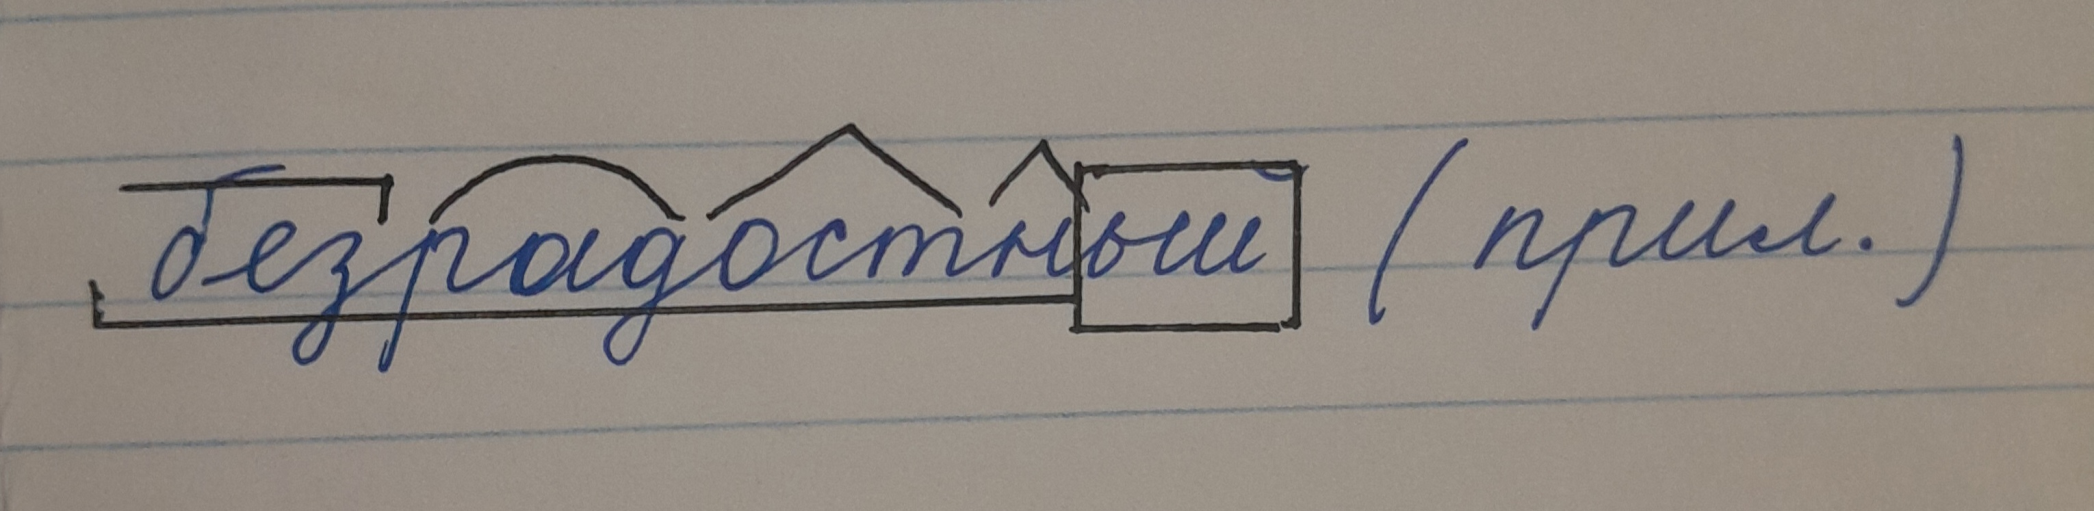 безрадостный (прил.)